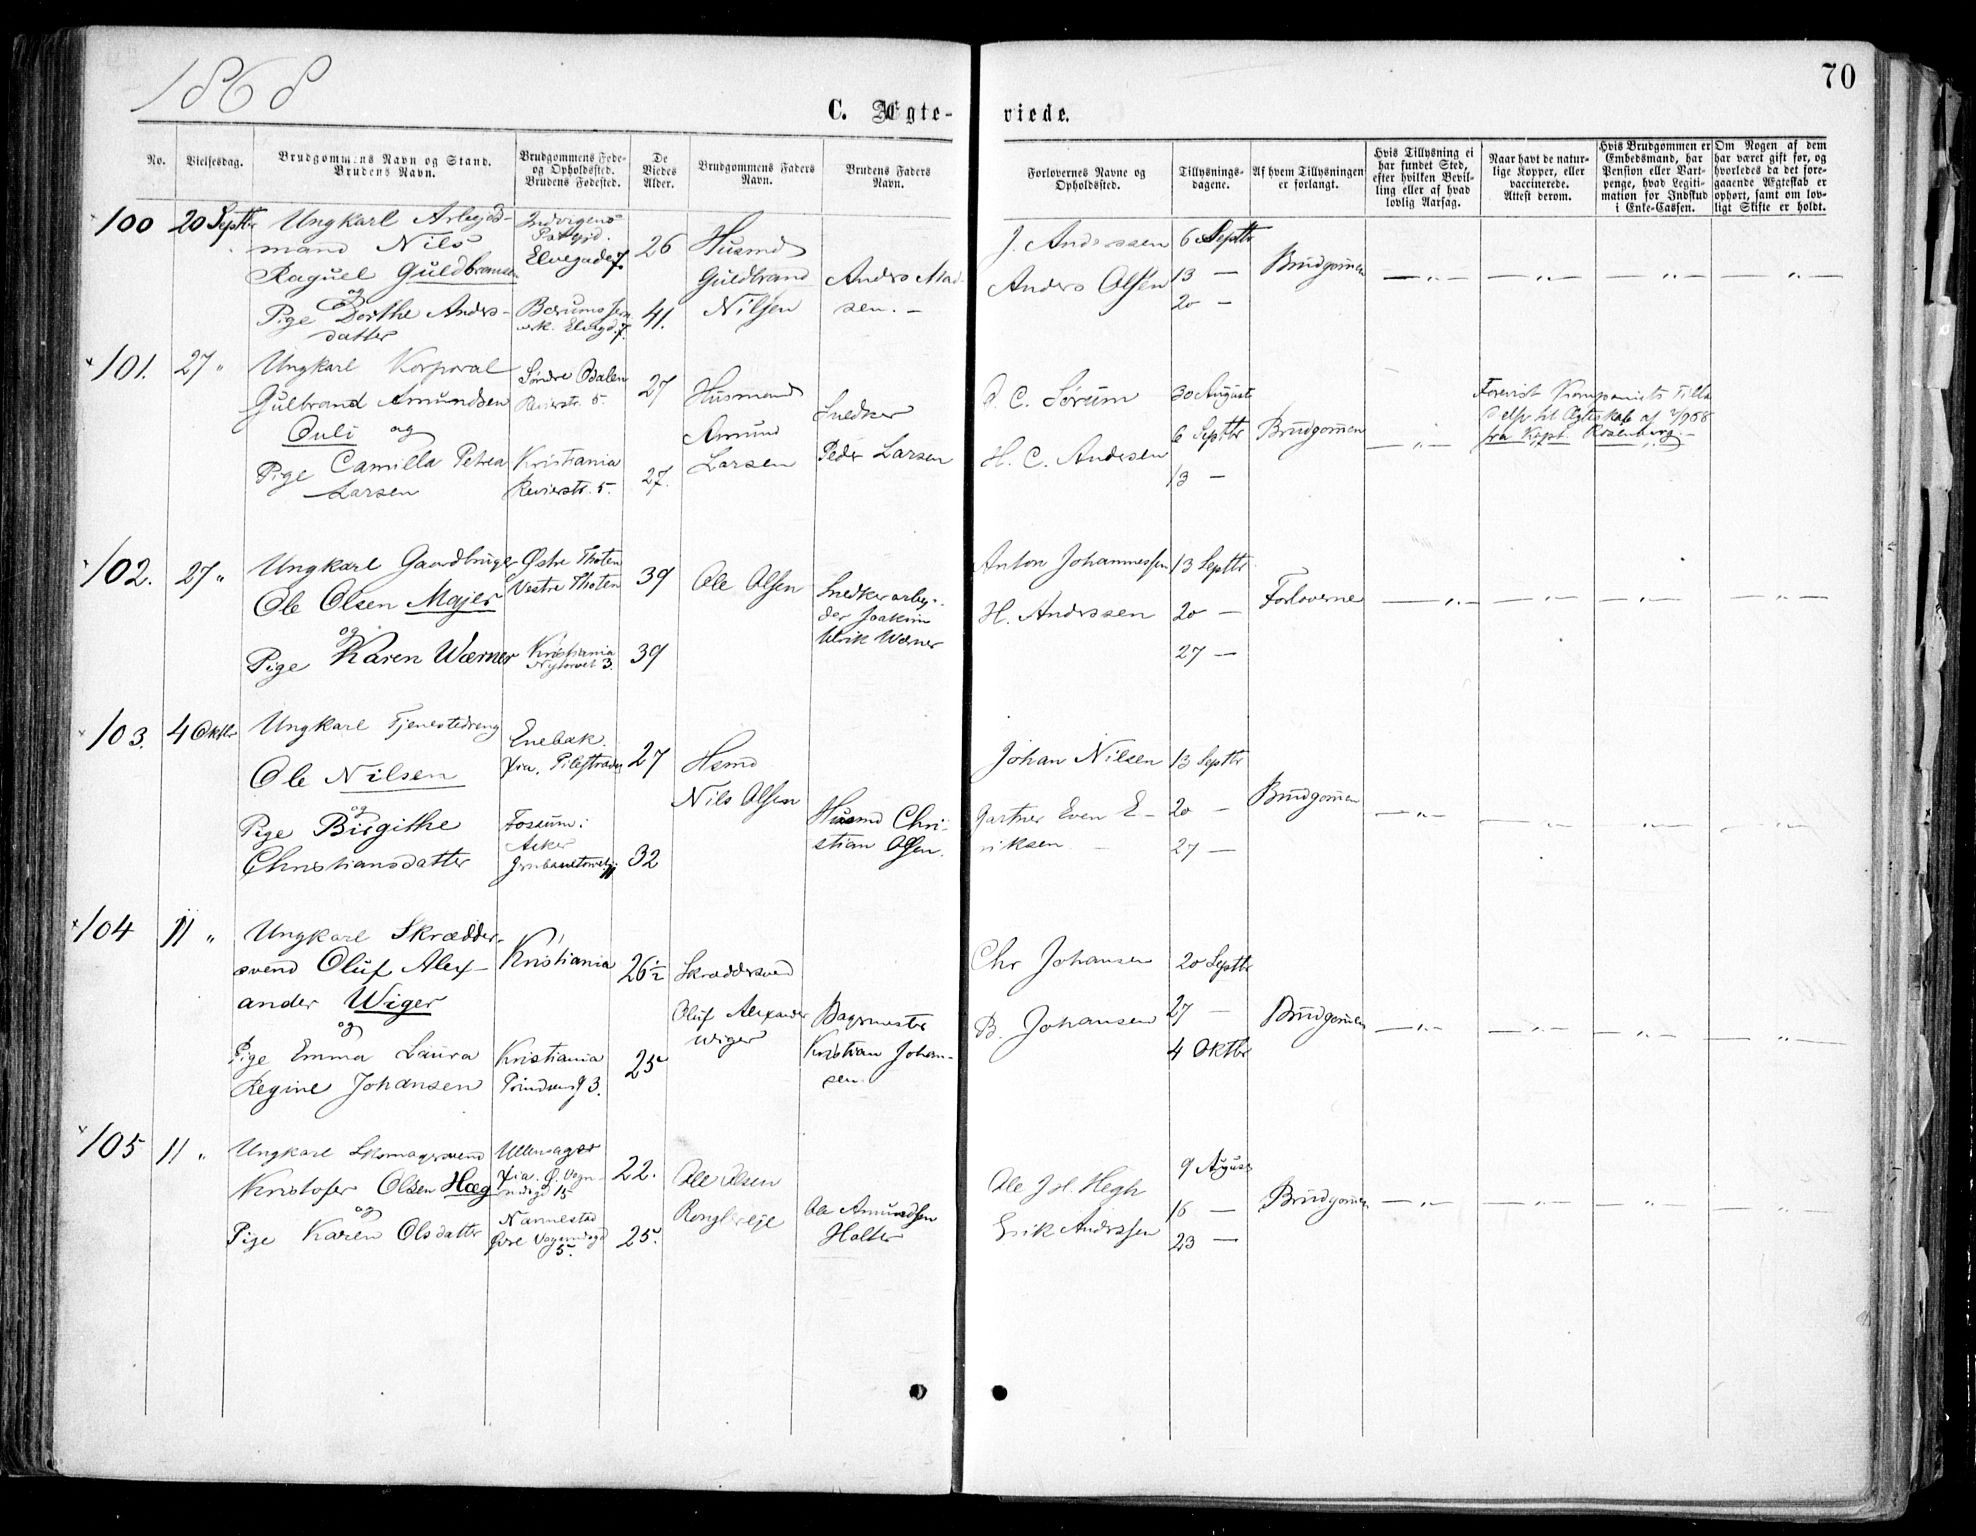 1868
70
C. Ægte-
viede.
No.
Vielsesdag.
Brudgommens Navn og Stand.
Brudens Navn.
Brudgommens Føde-
og Opholdssted.
Brudens Fødested.
De
Viedes
Alder.
Brudgommens Faders
Navn.
Brudens Faders
Navn.
Forlovernes Navne og
Opholdssted.
Tillysnings-
dagene.
Af hvem Tillysningen
er forlangt.
Hvis Tillysning ei
har fundet Sted,
efter hvilken Bevil-
ling eller af hvad
lovlig Aarsag.
Naar havt de natur-
lige Kopper, eller
vaccinerede.
Attest derom.
Hvis Brudgommen er
Embedsmand, har
Pension eller Vart-
penge, hvad Legiti-
mation for Indskud
i Enke-Cassen.
Om Nogen af dem
har været gift før, og
hvorledes da det fore-
gaaende Ægteskab er
ophørt, samt om lov-
ligt Skifte er holdt.
100
20 Septbr
Ungkarl Arbejds-
mand Nils
Raguel Guldbransen
og
Pige Dorthe Anders-
datter
Elvegade 7.
Bærums Jern
værk. Elvegd. 7.
26
41.
Husmd
Guldbrand
Nilsen
Anders Mad-
sen. -
J. Anderssen
Anders Olsen
6 Septbr
13 —
20 —
Brudgommen
— „ —
— „ —
— „ —
— „ —
101.
27 „
Ungkarl Korporal
Gulbrand Amundsen
Ouli og
Pige Camilla Petrea
Larsen
Søndre Odalen
Revierstr. 5.
Kristiania
Revierstr. 5.
27
27.
Husmand
Amund
Larsen
Snedker
Peder Larsen
C. Sørum
H. C. Andersen
30 August
6 Septbr
13 —
Brudgommen
— „ —
Forevist Kompaniets Tilla
delse til Ægteskab af
fra Kapt Rosenberg —
102.
27 „
Ungkarl Gaardbruger
Ole Olsen Majer
og
Pige Karen Wærner
Østre Thoten
Vestre Thoten
Kristiania
Nytorvet 3.
39
39
Ole Olsen
Snedkerarbej-
der Joakim
Ulrik Wærner
Anton Johannessen
H. Anderssen
13 Septbr
20 —
27 —
Forloverne
— „ —
— „ —
— „ —
— „ —
103.
4 Oktbr
Ungkarl Tjenestedreng
Ole Nilsen
og
Pige Birgithe
Christiansdatter
Enebak.
Xia, Pilestrædet
Fossum i
Asker
27
32
Hsmd
Nils Olsen
Husmd Chri-
stian Olsen.
Johan Nilsen
Gartner Even E-
riksen —
13 Septbr
20 —
27 —
Brudgommen
— „ —
— „ —
— „ —
— „ —
104
11 „
Ungkarl Skrædder-
svend Oluf Alex-
ander Wiger
og
Pige Emma Laura
Regine Johansen
Kristiania
Kristiania
Prindsensg 3.
26½
25
Skræddersvend
Oluf Alexander
Wiger
Bagermester
Kristian Johan-
sen.
Chr Johansen
B. Johansen
20 Septbr
27 —
4 Oktbr
Brudgommen
— „ —
— „ —
— „ —
— „ —
105
11 „
Ungkarl Skomagersvend
Kristofer Olsen Hæg
og
Pige Karen Olsdatter
Ullensager
Xia. Ø. Vogn-
mdsgd 15
Nannestad
Øvre Vognmdsgd
5.
22.
25.
Ole Olsen
Ole Amundsen
Holter
Ole Joh. Hegh
Erik Anderssen
9 August
16 —
23 —
Brudgommen
— „ —
— „ —
— „ —
— „ —